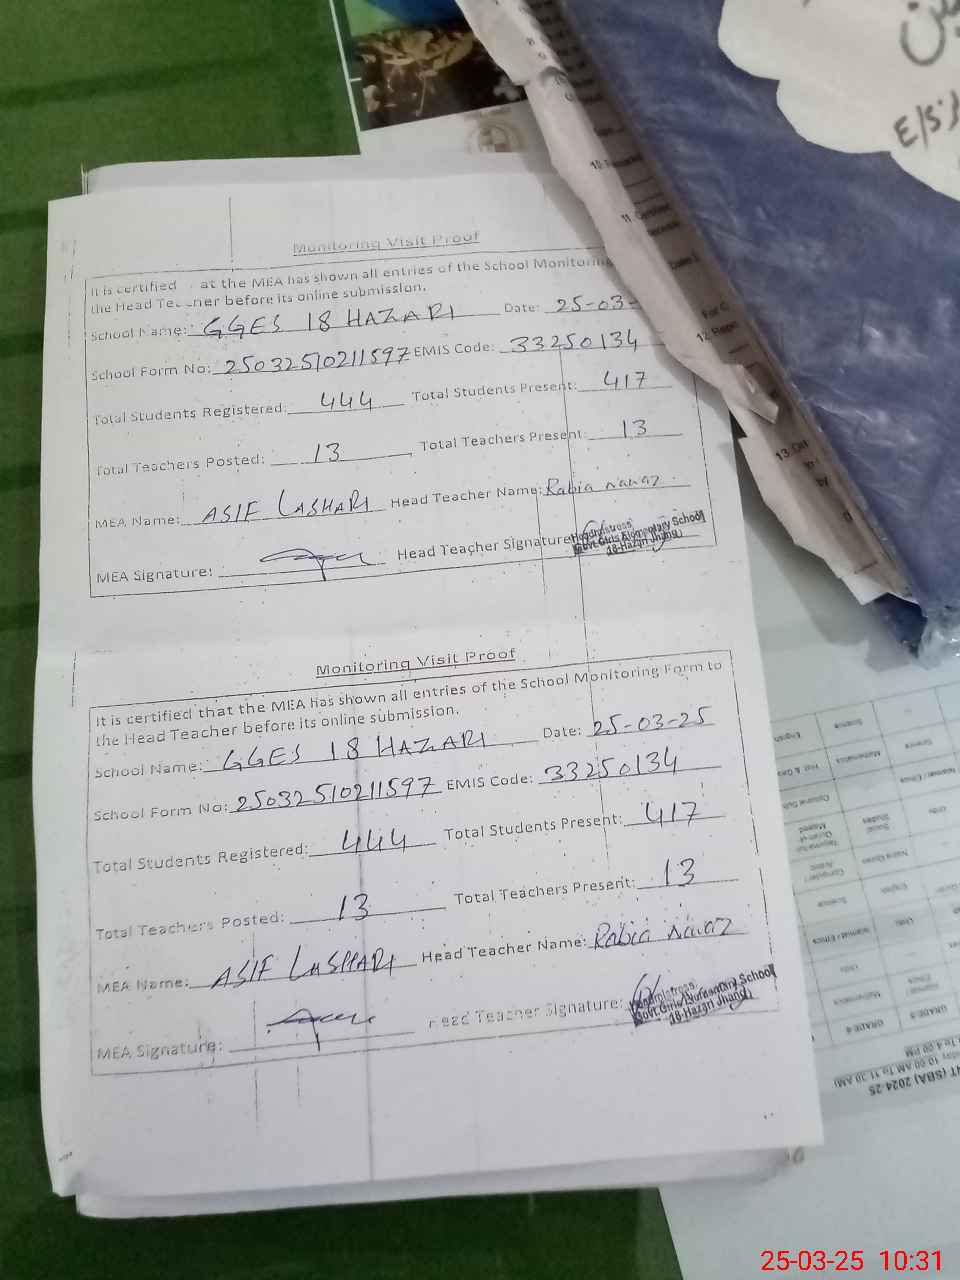 Monitoring Visit Proof
It is certified at the MEA has shown all entries of the School Monitoring
the Head Teacher before its online submission.
School Name: GGES 18 HAZARI Date: 25-03-
School Form No: 25032510211597 EMIS Code: 33250134
Total Students Registered: 444 Total Students Present: 417
Total Teachers Posted: 13 Total Teachers Present: 13
MEA Name: ASIF LASHARI Head Teacher Name: Rabia Nawaz
MEA Signature: Head Teacher Signature
Headmistress
Govt. Girls Elementary School
18-Hazari Jhang
Monitoring Visit Proof
It is certified that the MEA has shown all entries of the School Monitoring Form to
the Head Teacher before its online submission.
School Name: GGES 18 HAZARI Date: 25-03-25
School Form No: 25032510211597 EMIS Code: 33250134
Total Students Registered: 444 Total Students Present: 417
Total Teachers Posted: 13 Total Teachers Present: 13
MEA Name: ASIF LASHARI Head Teacher Name: Rabia Nawaz
MEA Signature: ead Teacher Signature:
Headmistress
Govt. Girls Elementary School
18-Hazari Jhang
E/S
English
Science
Hist & Geo
Mathematics
Science
Social Studies
Urdu
Computer
English
Science
Urdu
Islamiat / Ethics
Mathematics
GRADE-4
GRADE-5
(SBA) 2024-25
25-03-25 10:31